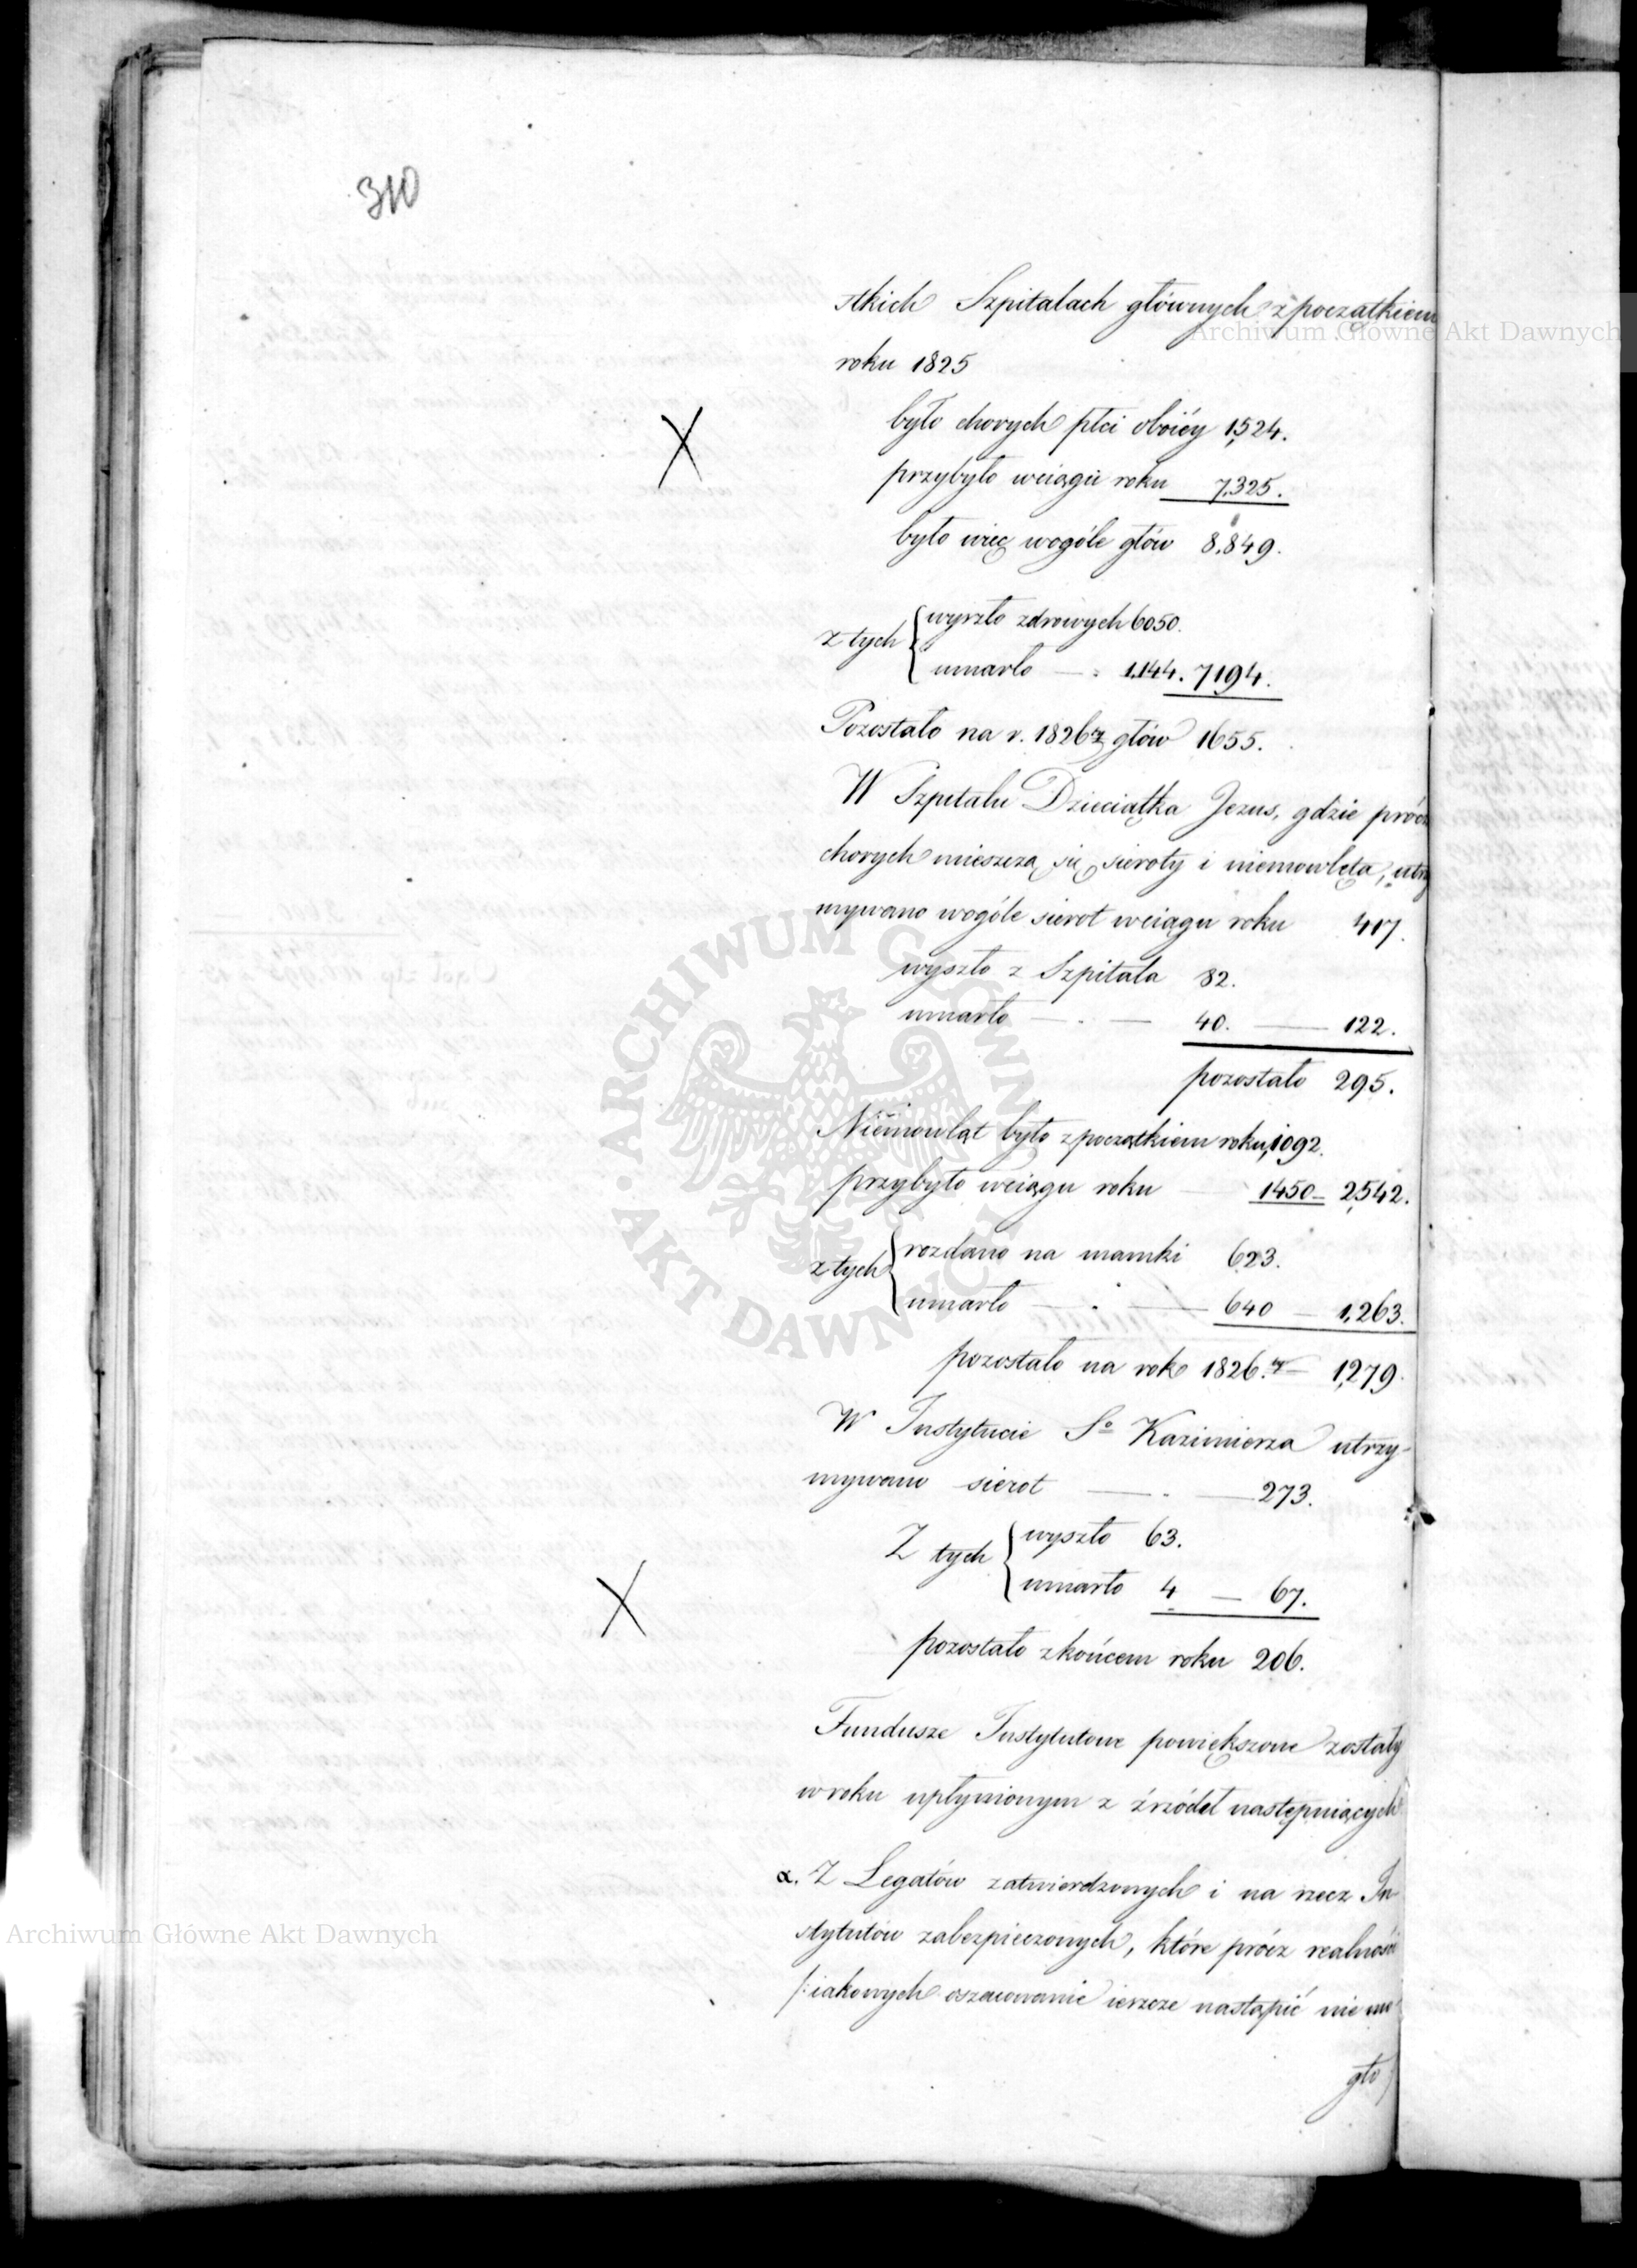 310
stkich Szpitalach głównych z początkiem
roku 1825
było chorych płci oboiéy 1,524.
przybyło wciągu roku 7,325.
było więc wogóle głów 8,849.
z tych { wyszło zdrowych 6050.
umarło — . 1,144. 7194.
Pozostało na r. 1826ty głów 1655.
W Szpitalu Dzieciątka Jezus, gdzie prócz
chorych mieszczą się sieroty i niemowlęta, utrzy
mywano wogóle sierot wciągu roku 417.
wyszło z Szpitala 82.
umarło — . — 40. — 122.
pozostało 295.
Niemowląt było z początkiem roku 1,092.
przybyło wciągu roku — 1450 — 2,542.
z tych { rozdano na mamki 623.
umarło — . — 640 — 1,263.
pozostało na rok 1826.ty — 1,279.
W Instytucie So Kazimierza utrzy-
mywano sierot — . — 273.
Z tych { wyszło 63.
umarło 4 — 67.
pozostało z końcem roku 206.
Fundusze Instytutowe powiększone zostały
w roku upłynionym z źrzódeł następuiących
a. Z Legatów zatwierdzonych i na rzecz In
stytutów zabezpieczonych, które prócz realności
/: iakowych oszacowanie ieszcze nastąpić nie mo
gło
Archiwum Główne Akt Dawnych
Archiwum Główne Akt Dawnych
ARCHIWUM GŁÓWNE • AKT DAWNYCH